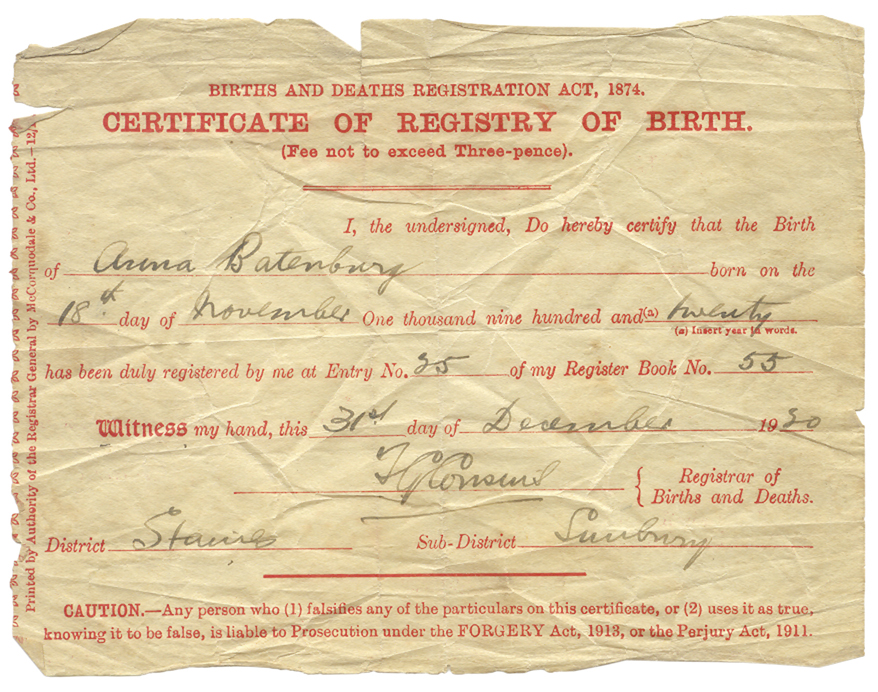 BIRTHS AND DEATHS REGISTRATION ACT, 1874.
CERTIFICATE OF REGISTRY OF BIRTH.
(Fee not to exceed Three-pence).
I, the undersigned, Do hereby certify that the Birth
of Anna Batenburg born on the
18th day of November One thousand nine hundred and(a) twenty
(a) Insert year in words.
has been duly registered by me at Entry No. 25 of my Register Book No. 55
Witness my hand, this 31st day of December 1920
Registrar of
Births and Deaths.
District Staines Sub-District Sunbury
CAUTION.—Any person who (1) falsifies any of the particulars on this certificate, or (2) uses it as true,
knowing it to be false, is liable to Prosecution under the FORGERY Act, 1913, or the Perjury Act, 1911.
Printed by Authority of the Registrar General by McCorquodale & Co., Ltd.—12/1